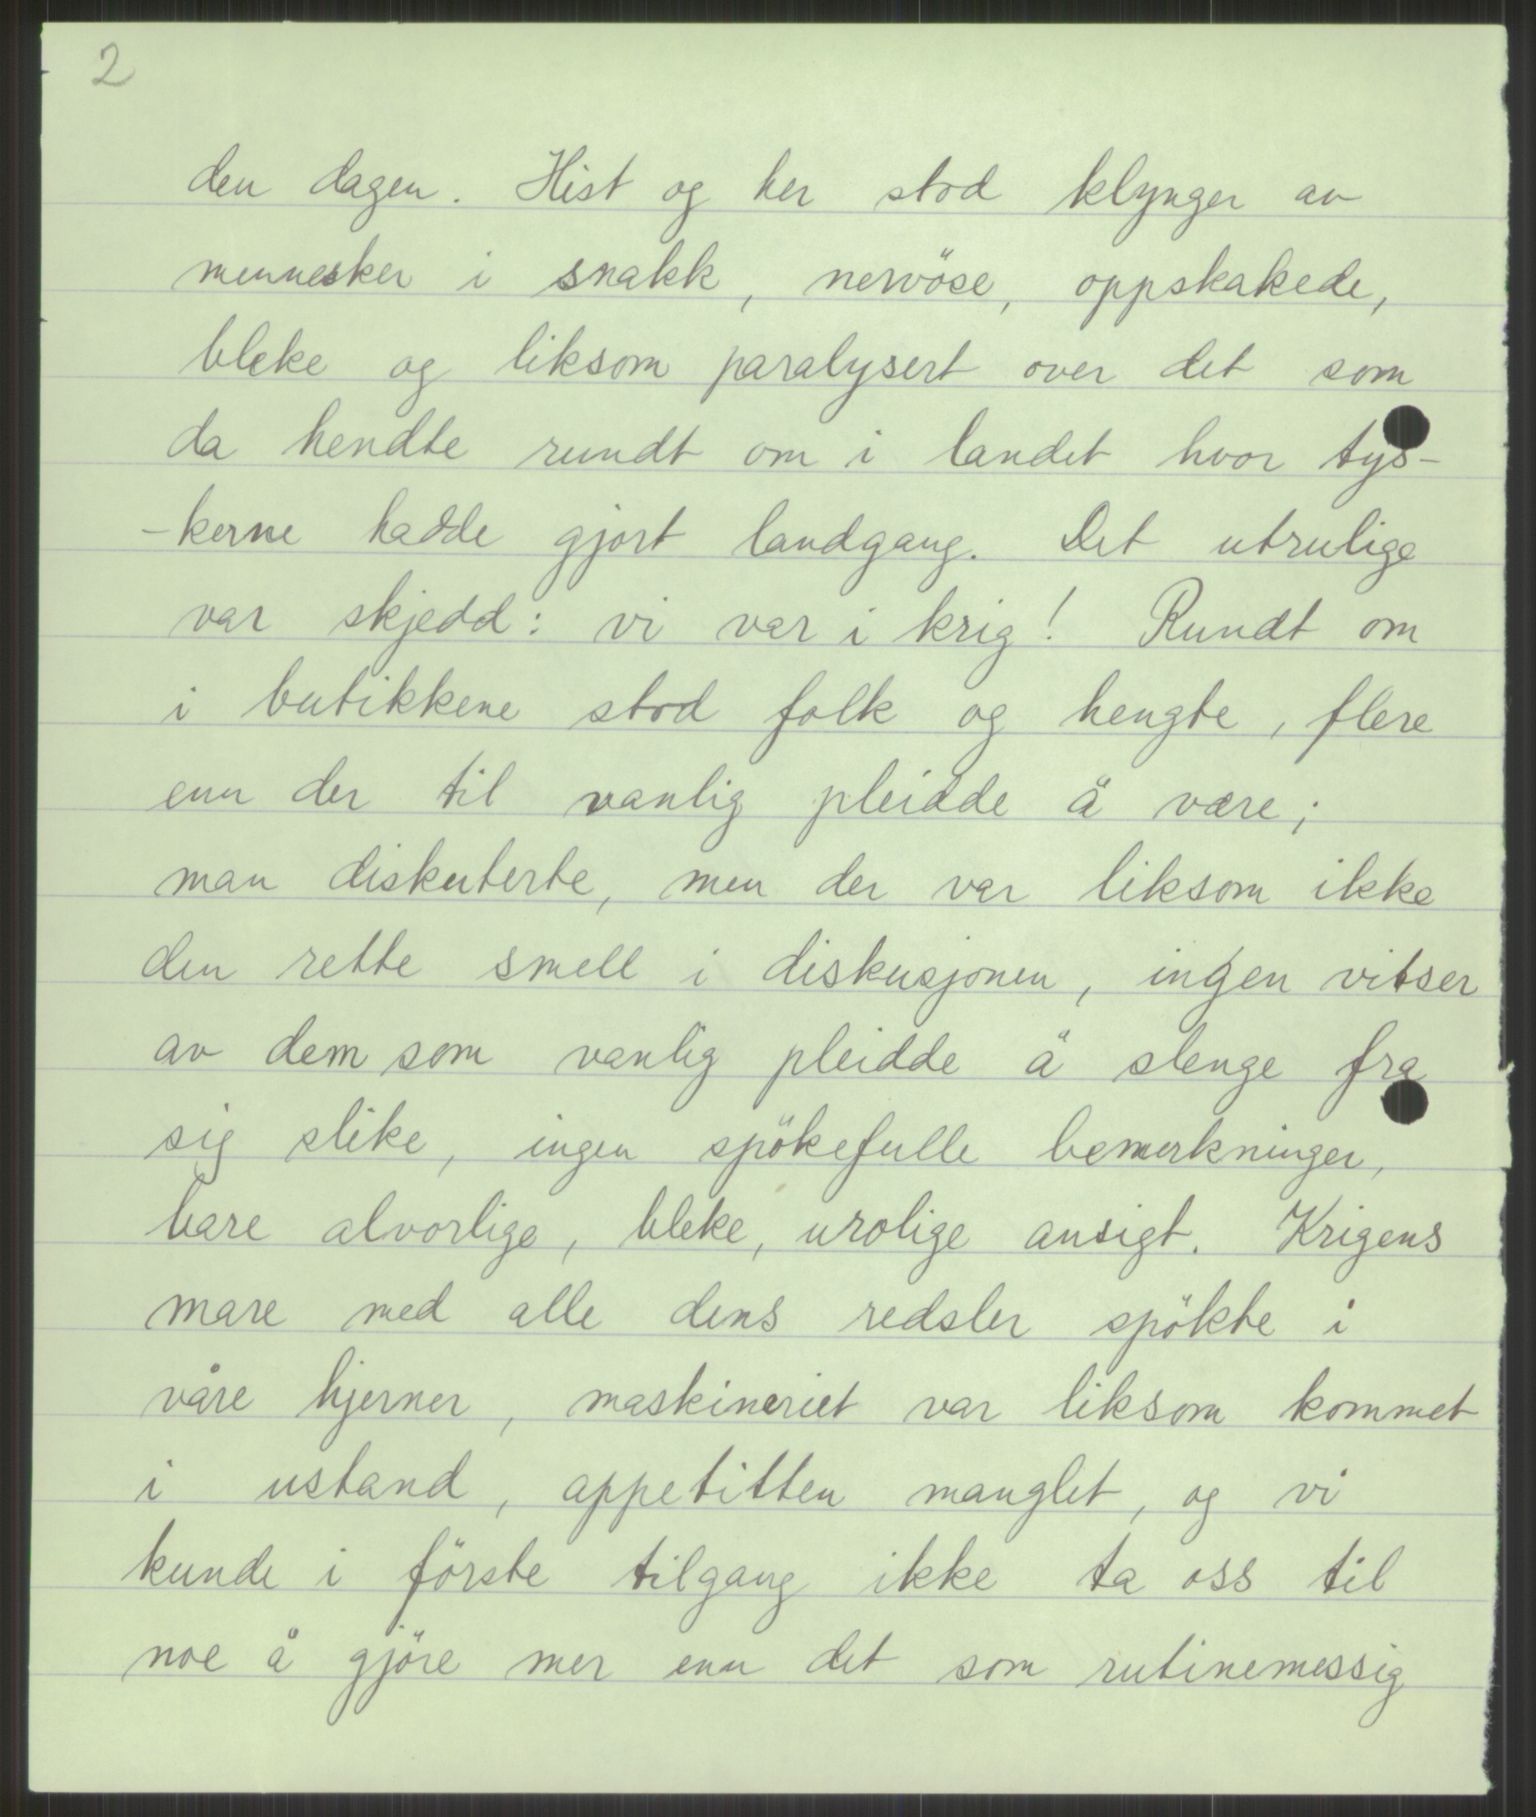 2
den dagen. Hist og her stod klynger av
mennesker i snakk, nervöse, oppskakede,
bleke og liksom paralysert over det som
da hendte rundt om i landet hvor tys-
-kerne hadde gjort landgang. Det utrulige
var skjedd: vi var i krig! Rundt om
i butikkene stod folk og hengte, flere
enn der til vanlig pleidde å være;
man diskuterte, men der var liksom ikke
den rette smell i diskusjonen, ingen vitser
av dem som vanlig pleidde å slenge fra
sig slike, ingen spökefulle bemerkninger,
bare alvorlige, bleke, urolige ansigt. Krigens
mare med alle dens redsler spökte i
våre hjerner, maskineriet var liksom kommet
i ustand, appetitten manglet, og vi
kunde i förste tilgang ikke ta oss til
noe å gjöre mer enn det som rutinemessig